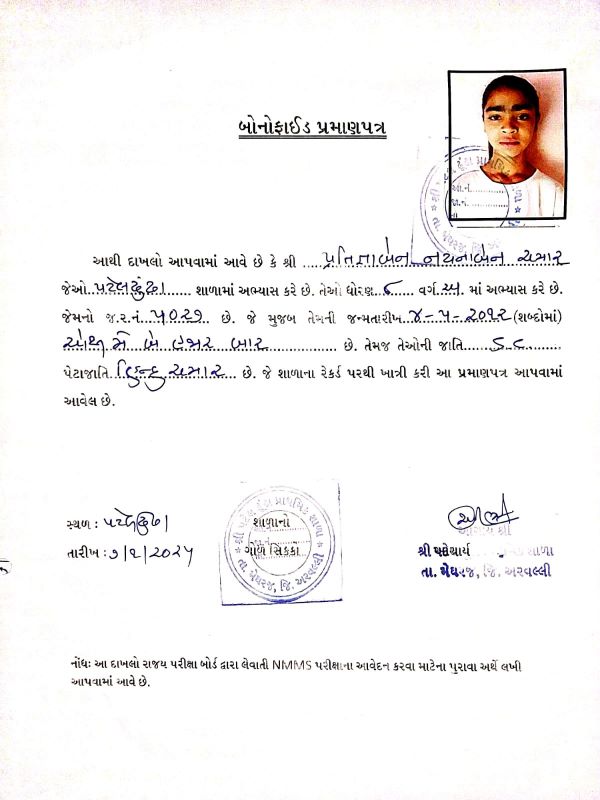 બોનોફાઈડ પ્રમાણપત્ર
આથી દાખલો આપવામાં આવે છે કે શ્રી .... પ્રતિતાબેન નયનાબેન ચમાર
જેઓ .પટેલઢુંઢા...... શાળામાં અભ્યાસ કરે છે. તેઓ ધોરણ..૮..... વર્ગ.અ.. માં અભ્યાસ કરે છે.
જેમનો જ.ર.નં..૫૦૨૭....... છે. જે મુજબ તેમની જન્મતારીખ.૪-૫-૨૦૧૨.(શબ્દોમાં)
ચોથી મે બે હજાર બાર ........................ છે. તેમજ તેઓની જાતિ .....S.C..........
પેટાજાતિ .હિન્દુ ચમાર .. છે. જે શાળાના રેકર્ડ પરથી ખાત્રી કરી આ પ્રમાણપત્ર આપવામાં
આવેલ છે.
સ્થળ : પટેલઢુંઢા
તારીખ : ૭/૨/૨૦૨૫
શાળાનો
ગોળ સિક્કો
આચાર્ય શ્રી
તા. મેઘરજ, જિ. અરવલ્લી
નોંધઃ આ દાખલો રાજય પરીક્ષા બોર્ડ દ્વારા લેવાતી NMMS પરીક્ષાના આવેદન કરવા માટેના પુરાવા અર્થે લખી
આપવામાં આવે છે.